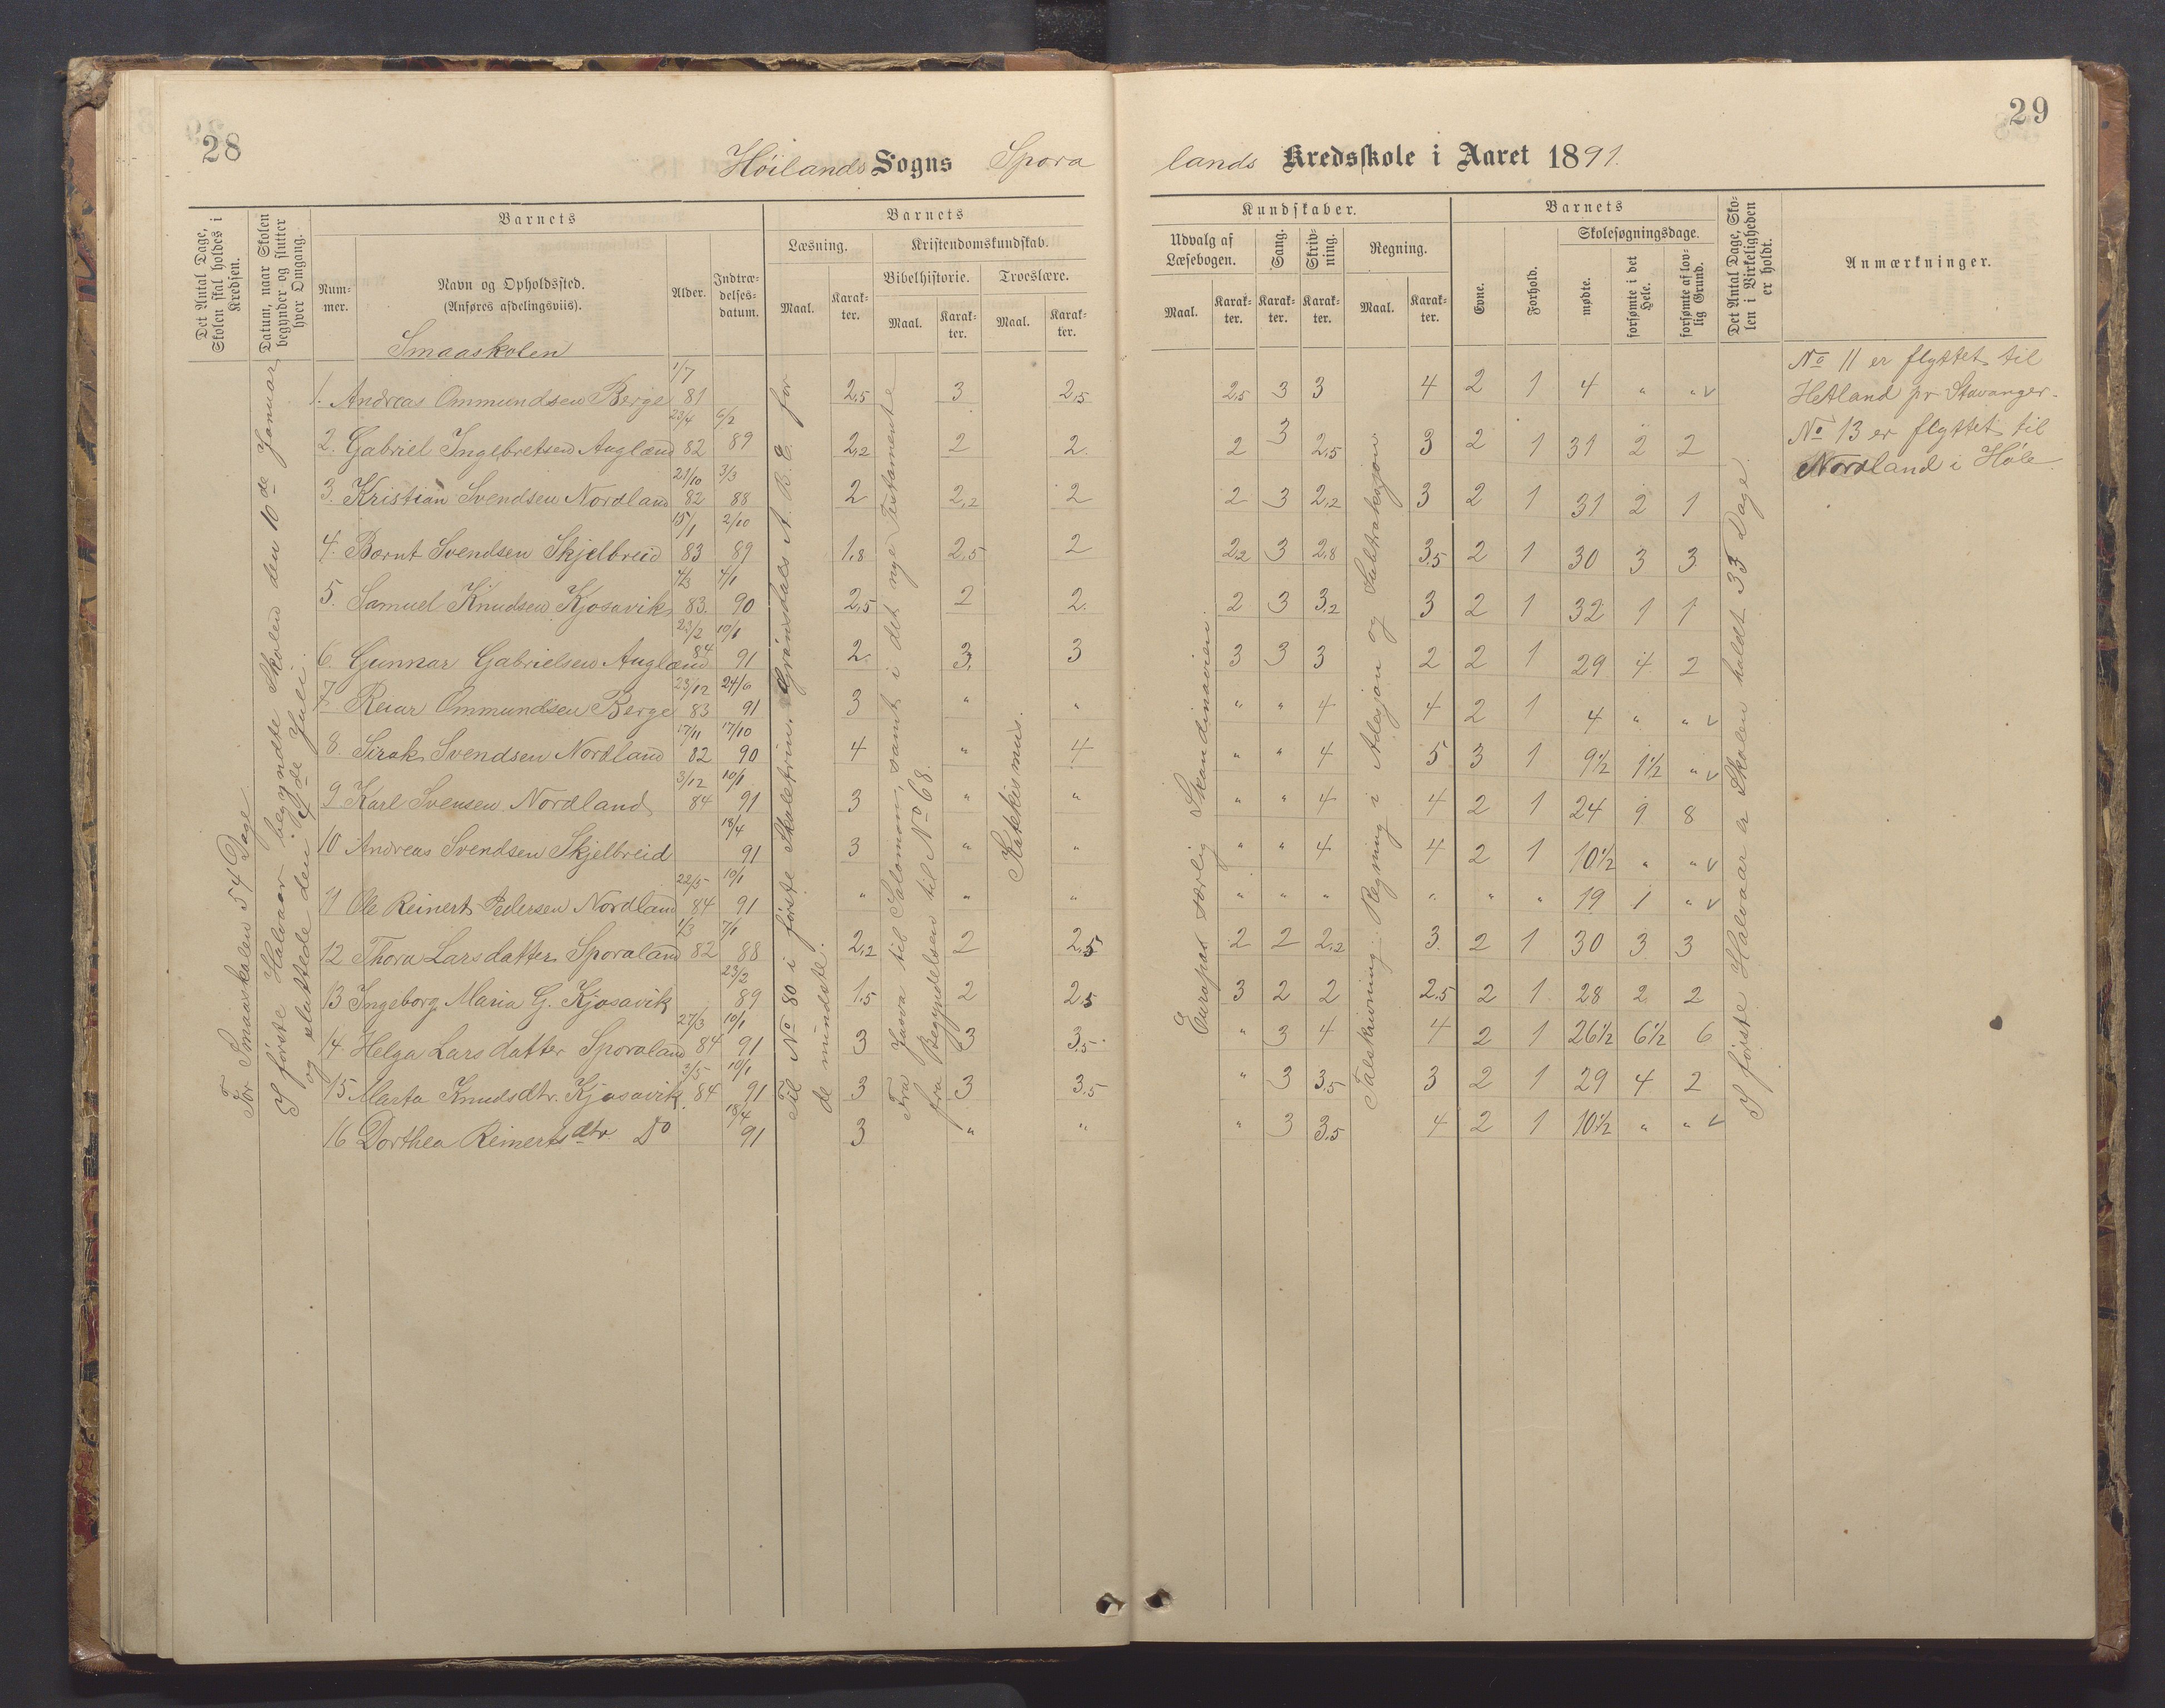 28
Höilands Sogns Spora
Det Antal Dage, Skolen skal holdes i Kredsen.
Datum, naar Skolen begynder og slutter hver Omgang.
Barnets
Nummer.
Navn og Opholdssted.
(Anføres afdelingsviis).
Alder.
Indtrædelsesdatum.
Barnets
Læsning.
Kristendomskundskab.
Bibelhistorie.
Troeslære.
Maal.
Karakter.
Maal.
Karakter.
Maal.
Karakter.
Smaaskolen
For Smaaskolen 54 Dage
I første Halvaar begyndte Skolen den 10de Januar
og sluttede den 9de Juli.
1. Andreas Ommundsen Berge 1/7 81 2,5 3 2,5
2. Gabriel Ingebretsen Auglænd 23/4 82 6/2 89 2,2 2 2
3. Kristian Svendsen Nordland 21/10 82 3/3 88 2 2,2 2
4. Bornt Svendsen Skjelbreid 15/1 83 2/10 89 1,8 2,5 2
5. Samuel Knudsen Kjosavik 4/3 83. 4/1 90 2,5 2 2.
6. Gunnar Gabrielsen Auglænd 23/2 84 10/1 91 2 3. 3
7. Reiar Ommundsen Berge 23/12 83 24/6 91 3 " "
8. Sirak Svendsen Nordland 17/11 82 17/10 90 4 " 4
9 Karl Svensen Nordland 3/12 84 10/1 91 3 " "
10 Andreas Svendsen Skjelbreid 18/4 91 3 " "
11 Ole Reinert Pedersen Nordland 22/5 84 10/1 91 " " "
12 Thora Larsdatter Sporaland 1/3 82 7/1 88 2,2 2 2,5
13 Ingeborg Maria G. Kjosavik 23/2 89 1,5 2 2,5
14. Helga Larsdatter Sporaland 27/3 84 10/1 91 3 3 3,5
15. Marta Knudsdtr. Kjosavik 84 10/1 91 3 3 3,5
16 Dorthea Reinertsdtr Do 18/4 91 3 " "
Til No 80 i første Skoletrin. Grøndals A.B.C. for
de mindste.
Fra Josva til Salomon, samt i det nye Testamente
fra Begyndelsen til No 68.
Katekismus.
29
lands Kredsskole i Aaret 1891.
Kundskaber.
Udvalg af Læsebogen.
Sang.
Skrivning.
Regning.
Maal.
Karakter.
Karakter.
Karakter.
Maal.
Karakter.
Barnets
Evne.
Forhold.
Skolesøgningsdage.
mødte.
forsømte i det Hele.
forsømte af lovlig Grund.
Det Antal Dage, Skolen i Virkeligheden er holdt.
Anmærkninger.
2,5 3 3 4 2 1 4 " " v
2 3 2,5 3 2 1 31 2 2
2 3 2,2 3 2 1 31 2 1
2,2 3 2,8 3,5 2 1 30 3 3
2 3 3,2 3 2 1 32 1 1
3 3 3 2 2 1 29 4 2
" " 4 4 2 1 4 " " v
" " 4 5 3 1 9 1/2 1 1/2 " v
" " 4 4 2 1 24 9 8
" " 4 4 2 1 10 1/2 " " v
" " " " " " 19 1 " v
2 2 2,2 3. 2 1 30 3 3
3 2 2 2,5 2 1 28 2 2
" 3 4 4 2 1 26 1/2 6 1/2 6
" 3 3,5 3 2 1 29 4 2
" 3 3,5 4 2 1 10 1/2 " " v
Europas særlig Skandinavien.
Talskrivning. Regning i Adisjon og Subtraksjon
I første Halvaar er Skolen holdt 33 Dage.
No 11 er flyttet til
Hetland pr Stavanger.
No 13 er flyttet til
Nordland i Høle.